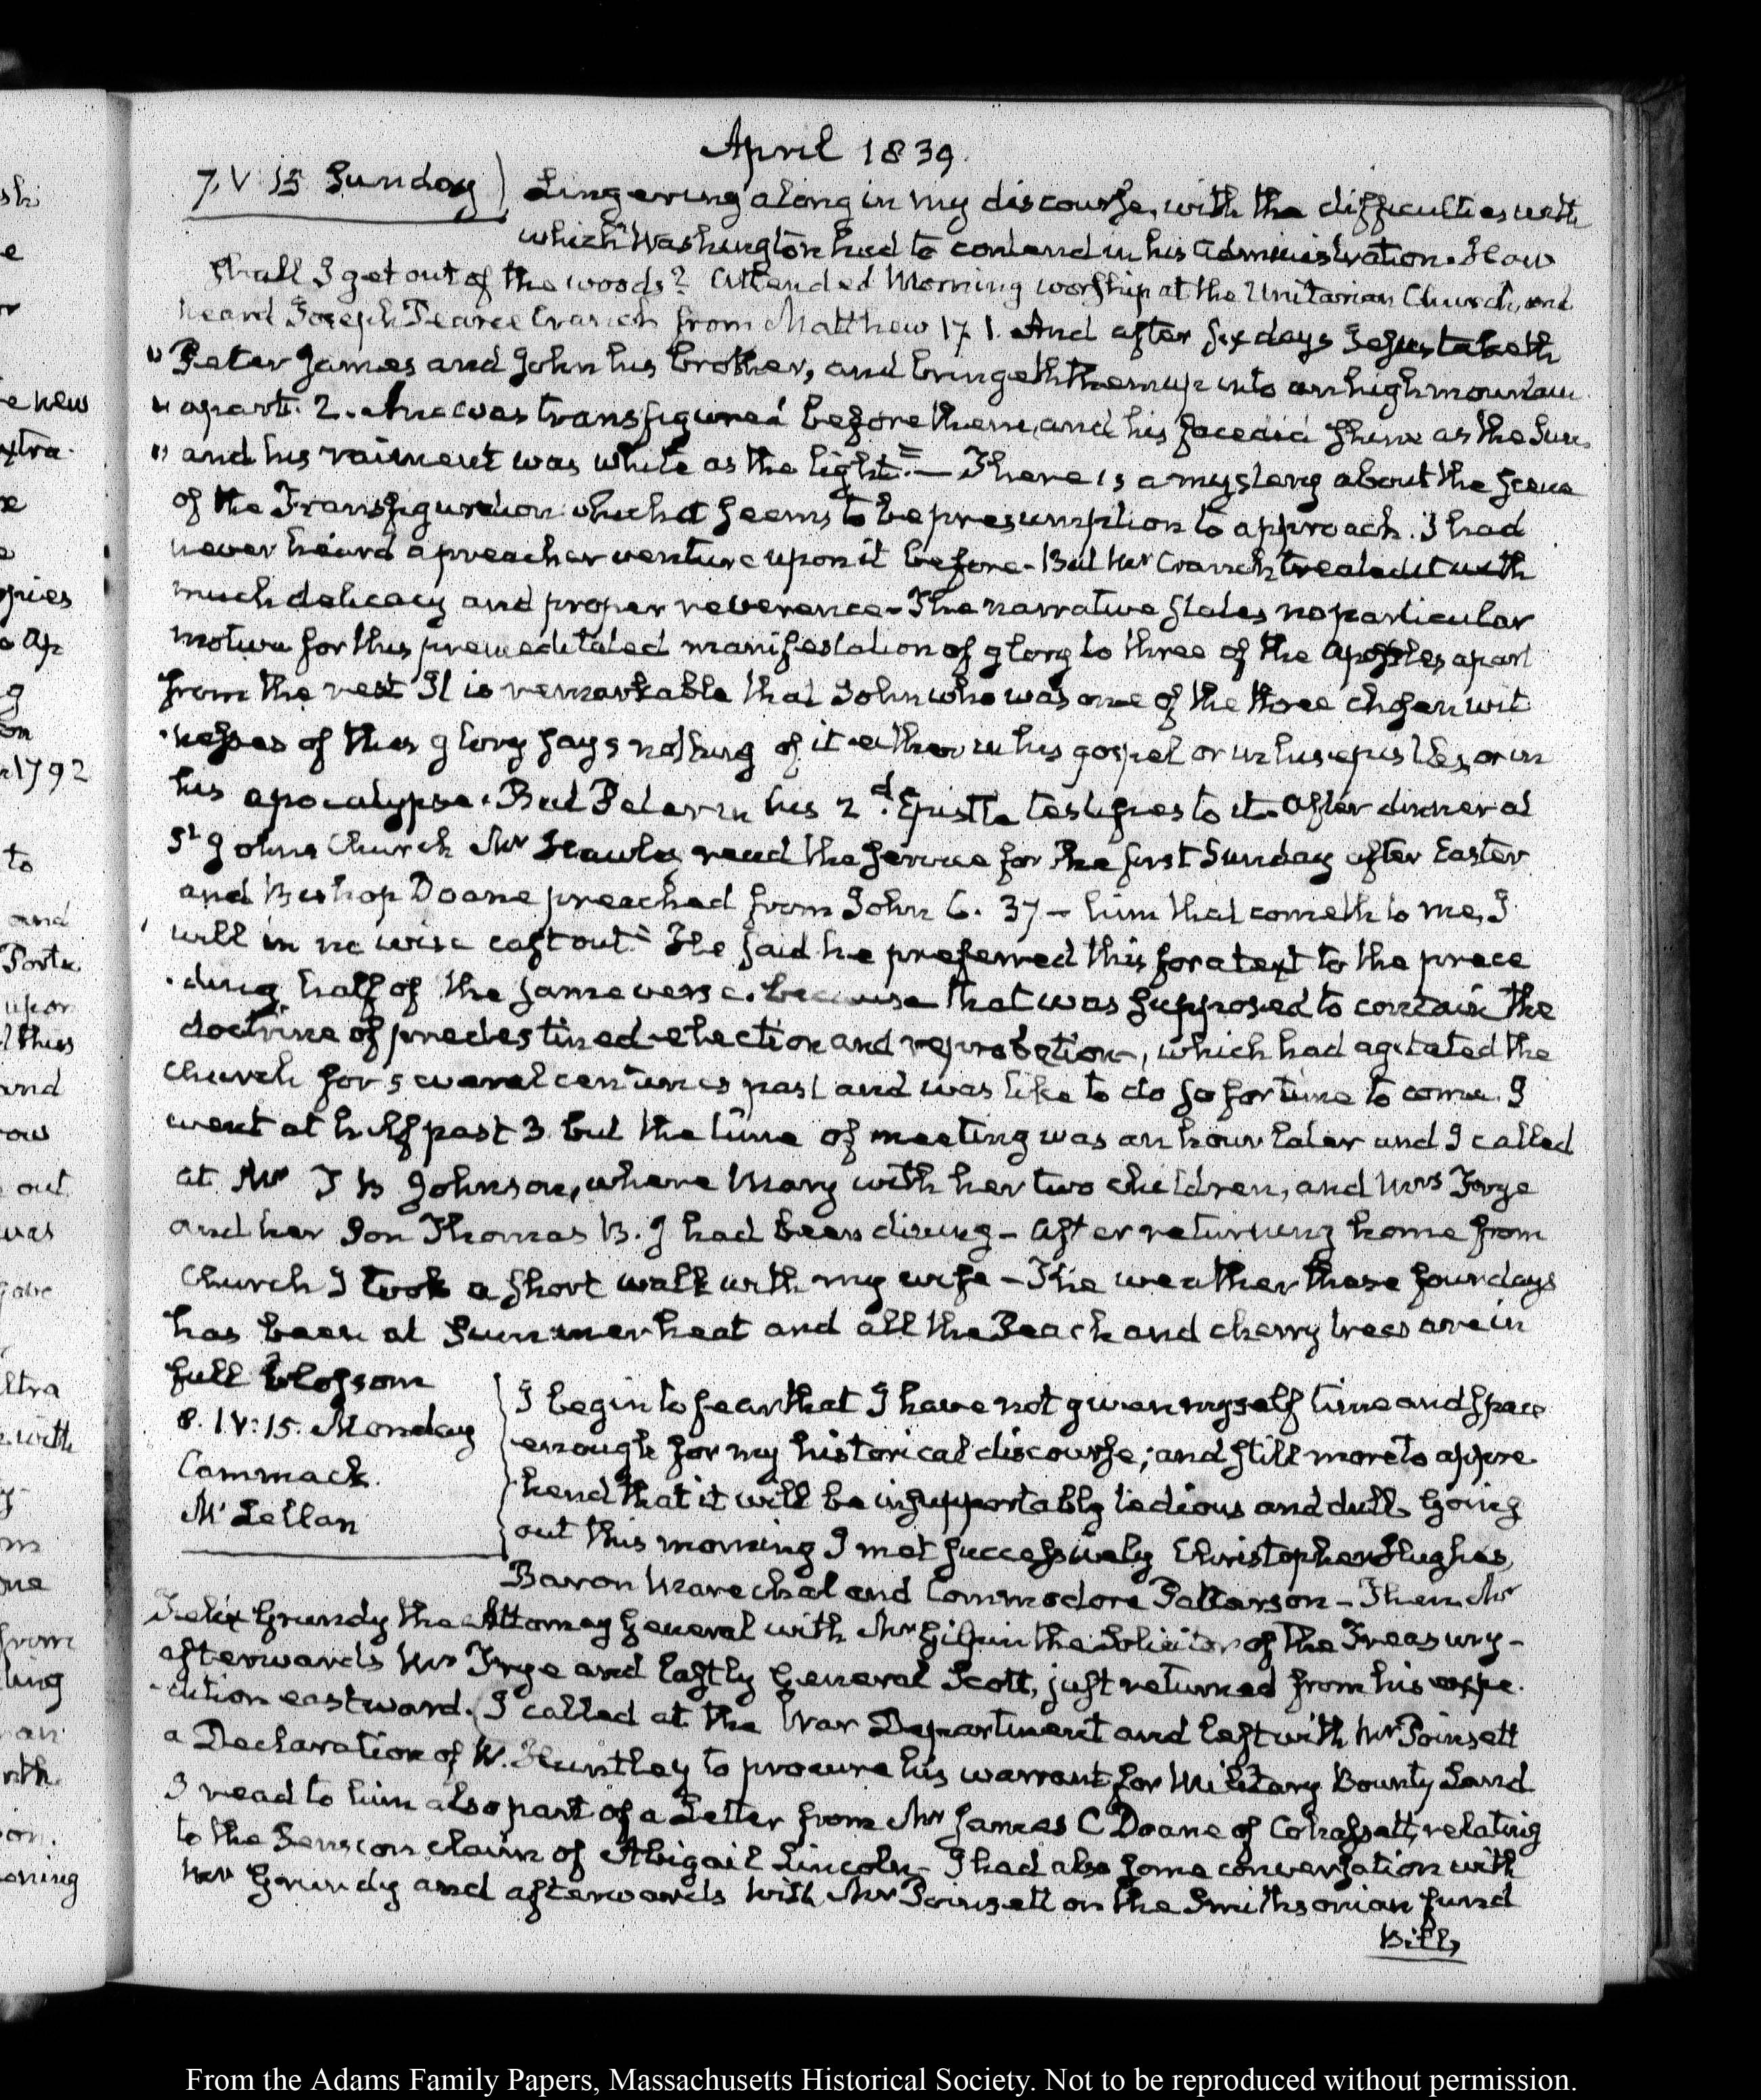 April 1839.
7. V. 15 Sunday
Lingering along in my discourse, with the difficulties with
which Washington had to contend in his Administration. How
shall I get out of the woods? Attended Morning worship at the Unitarian Church, and
heard Joseph Pearce Cranch from Matthew 17. 1. And after six days Jesus taketh
" Peter James and John his brother, and bringeth them up into an high mountain
" apart. 2. And was transfigured before them, and his face did shine as the Sun,
" and his raiment was white as the light." — There is a mystery about the scene
of the Transfiguration which it seems to be presumption to approach. I had
never heard a preacher venture upon it before - But Mr Cranch treated it with
much delicacy and proper reverence - The narrative states no particular
motive for this premeditated manifestation of glory to three of the Apostles apart
from the rest It is remarkable that John who was one of the three chosen wit
nesses of this glory says nothing of it either in his gospel or in his epistles, or in
his apocalypse. But Peter in his 2d. Epistle testifies to it. After dinner at
St Johns Church Mr Hawley read the service for the first Sunday after Easter
and Bishop Doane preached from John 6. 37 - him that cometh to me, I
will in no wise cast out." He said he preferred this for a text to the prece
ding half of the same verse. because that was supposed to contain the
doctrine of predestined election and reprobation, which had agitated the
church for several centuries past and was like to do so for time to come. I
went at half past 3. but the time of meeting was an hour later and I called
at Mr T B Johnson, where Mary with her two children, and Mrs Frye
and her Son Thomas B. J had been dining - After returning home from
Church I took a short walk with my wife - The weather these four days
has been at Summer heat and all the Peach and cherry trees are in
full blossom
8. IV: 15. Monday
Cammack.
McLellan
I begin to fear that I have not given myself time and space
enough for my historical discourse; and still more to appre
hend that it will be insupportably tedious and dull. Going
out this morning I met successively Christopher Hughes,
Baron Marechal and Commodore Patterson - Then Mr
Felix Grundy the Attorney General with Mr Gilpin the Solicitor of the Treasury -
afterwards Mr Frye and lastly General Scott, just returned from his expe
dition eastward. I called at the War Department and left with Mr Poinsett
a Declaration of W. Huntley to procure his warrant for Military Bounty Land
I read to him also part of a Letter from Mr James C Doane of Cohassett, relating
to the Pension claim of Abigail Lincoln - I had also some conversation with
Mr Grundy and afterwards with Mr Poinsett on the Smithsonian fund
Bill,
From the Adams Family Papers, Massachusetts Historical Society. Not to be reproduced without permission.